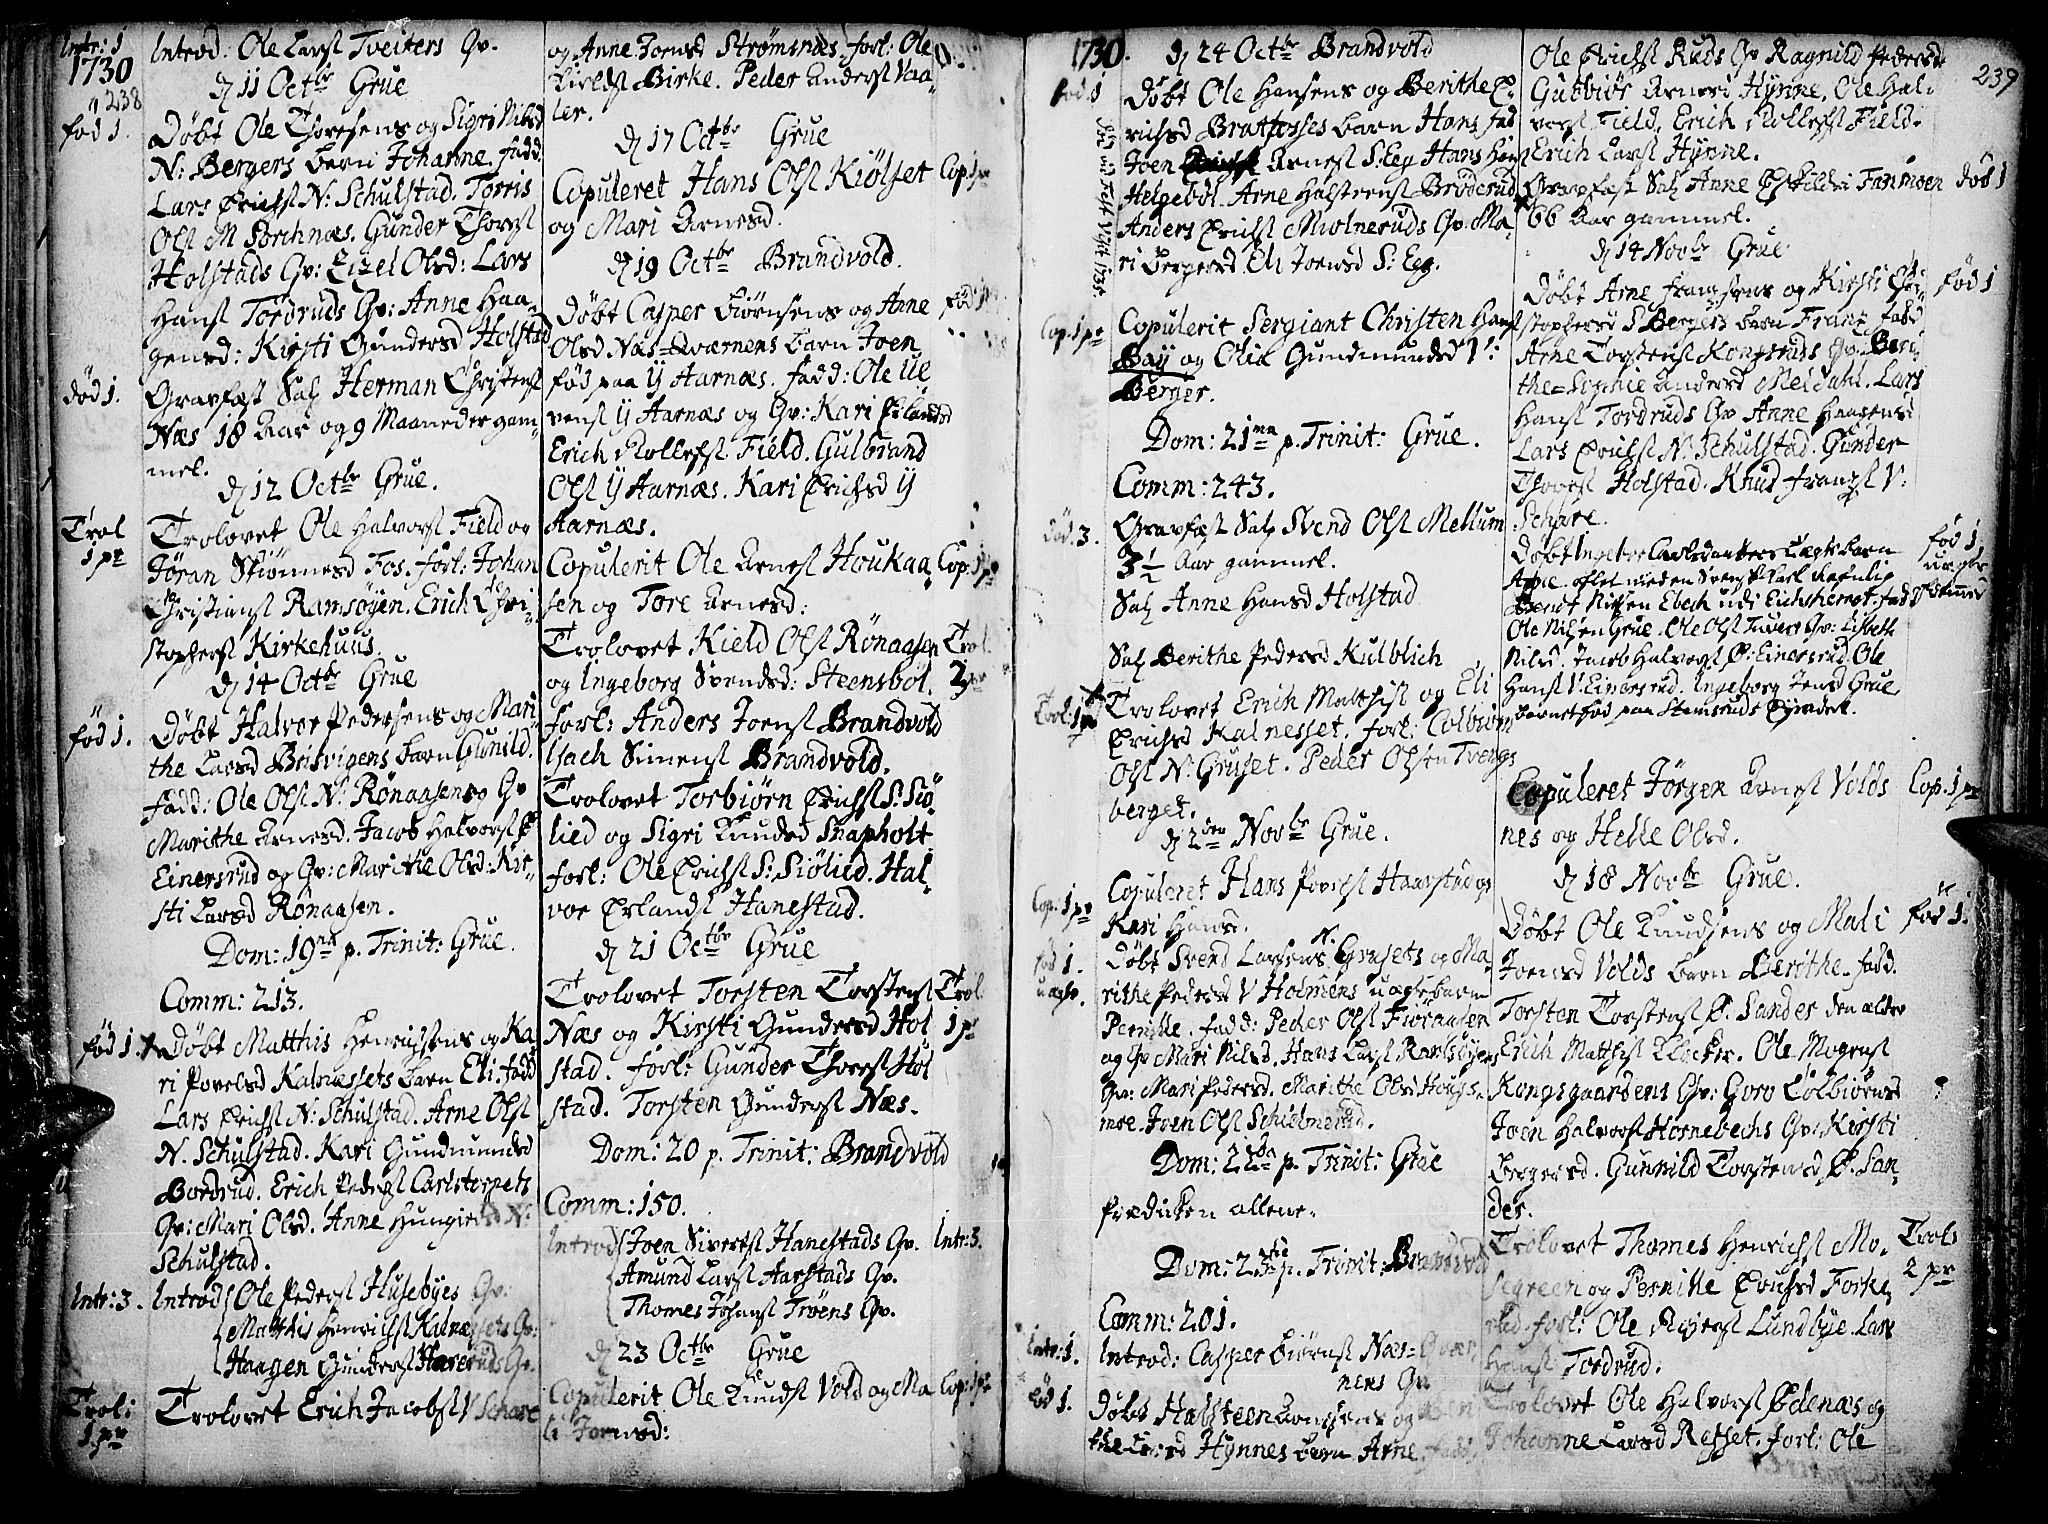 Intr: 1
1730
238
Introd: Ole Larsſ Tveiters Qv.
d 11 Octbr Grue
fød 1.
Døbt Ole Thoresens og Sigri Nilsd
N: Bergers barn Johanne. fadd
Lars Erichsſ N: Schulstad. Torris
Olsſ M Sorchnæs. Gunder Thoresſ
Holstads Qv: Eizel Olsd: Lars
Hansſ Tordruds Qv: Anne Haa-
gensd: Kirsti Gundersd Holstad
død 1.
Gravfæst Sal Herman Christensſ
Næs 18 Aar og 9 Maaneder gam-
mel.
d 12 Octbr Grue.
Trol
1 pr
Trolovet Ole Halvorsſ Field og
Jøran Skiønnesd Fos. forl: Johan
Christiansſ Ramsøyen. Erich Chri-
stophersſ Kirkehuus.
d 14 Octbr Grue
fød 1.
Døbt Halvor Pedersens og Mari
the Larsd Brisvigens barn Gunild.
fadd: Ole Olsſ N: Rønaasens Qv
Marithe Arnesd. Jacob Halvorsſ Ø
Einersrud og Qv: Marithe Olsd: Kir-
sti Larsd Rønaasen.
Dom: 19na p. Trinit: Grue.
Comm: 213.
fød 1.
Døbt Matthis Henrichsens og Ka
ri Povelsd Kalnæssets barn Eli. fadd
Lars Erichsſ N: Schulstad. Arne Olsſ
N. Schulstad. Kari Gundmundsd
Bordrud. Erich Pedersſ Carlstorpets
Qv: Mari Olsd. Anne N:
Schulstad.
Intr: 3.
Introd Ole Pedersſ Husebyes Qv:
Matthis Henrichsſ Kalnæssets Qv:
Haagen Gundersſ Qv.
Trol:
1 pr
Trolovet Erich Jacobsſ V Schare
og Anne Joensd Strømsnæs. forl: Ole
Kieldsſ Birke. Peder Andersſ Vaa-
ler.
d 17 Octbr Grue
Copuleret Hans Olsſ Kiølset
Cop 1 pr
og Mari Arnesd.
d 19 Octbr Brandvold.
Døbt Casper Biørnsens og Anne
fød 1
Olsd Næs-Qværnens barn Joen
fød paa Y Aarnæs. fadd: Ole Ul
vensſ Y Aarnæs og Qv: Kari Erlandsd
Erich Rollefsſ Field. Gulbrand
Olsſ Y Aarnæs. Kari Erichsd Y
Aarnæs.
Copulerit Ole Arnesſ Houkaa
Cop: 1 pr
sen og Tore Arnesd:
Trolovet Kield Olsſ Rønaasen
Trol
og Ingeborg Svendsd: Steensbøl.
2 pr
forl: Anders Joensſ Brandvold
Isach Simensſ Brandvold.
Trolovet Torbiørn Erichsſ S: Siø
lied og Sigri Knudsd Snapholt
forl: Ole Erichsſ S: Siølied. Hal-
vor Erlandsſ Hanestad.
d 21 Octbr Grue
Trolovet Torsten Torstensſ
Trol
Næs og Kirsti Gundersd Hol
1 pr
stad. forl: Gunder Thoresſ Hol
stad. Torsten Gundersſ Næs.
Dom: 20 p. Trinit: Brandvold
Comm: 150.
Introd Joen Sivertsſ Hanestads Qv.
Intr: 3.
Amund Larsſ Aarstads Qv.
Thomes Johansſ Trøens Qv.
d 23 Octbr Grue
Copulerit Ole Knudsſ Vold og Ma
Cop: 1 pr
li Joensd:
1730.
d 24 Octbr Brandvold
fød 1
Døbt Ole Hansens og Berithe E
richsd Bratfosses barn Hans fad
Joen Arnesſ S: Eeg Hans Hansſ
Helgebøl. Arne Halsteensſ Brøderud
Anders Erichsſ Mulneruds Qv. Ma-
ri Bergersd Eli Joensd S: Eeg.
Cop. 1 pr
Copulerit Sergiant Christen Hansſ
Bay og Olia Gundmundsd V:
Berger.
Dom: 21ma p. Trinit: Grue.
Comm: 243.
Død. 3.
Gravfæst Sal Svend Olsſ Mellum
3 1/2 Aar gammel.
Sal Anne Hansd Holstad
Sal Berithe Pedersd Kulblich
Trol: 1 pr
Trolovet Erich Matthisſ og Eli
Erichsd Kalnesset. forl: Colbiørn
Olsſ N: Gruset. Peder Olsen Tvengs
berget.
d 2den Novbr Grue.
Cop: 1 pr
Copuleret Hans Povelsſ Haarstad og
Kari Hansd.
fød 1.
uægt.
Døbt Svend Larsens N. Grusets og Ma-
rithe Pedersd V Holmens uægte barn
Pernille. fadd: Peder Olsſ Fioraasen
og Qv Mari Nilsd. Hans Larsſ Ramsøyens
Qv: Mari Pedersd. Marithe Olsd Hougs-
moe. Joen Olsſ Schulmerud.
Dom: 22da p. Trinit: Grue
Prædicken allene.
Dom: 23tia p. Trinit: Brandvold
Comm: 201.
Intr: 1.
Introd: Casper Biørnsſ Næs-Qvær
nens Qv
fød 1.
Døbt Halsteen og Ben
the Hynnes barn Arne. fadd
239
Ole Erichsſ Ruds Qv Ragnild Pedersd
Gubbiør Arnesd Hynne. Ole Hal-
vorsſ Field. Erich Rollefsſ Field.
Erich Larsſ Hynne.
Gravfæst Sal Anne Eskildsd Fanmoen
død 1
66 Aar gammel.
d 14 Novbr Grue
Døbt Arne Franzsens og Kirsti Chri-
fød 1
stophersd S Bergers barn Franz. fadd
Arne Torstensſ Kongsruds Qv. Beri
the-Sophie Andersd Meldahl. Lars
Hansſ Tordruds Qv Anne Haagensd
Lars Erichsſ N: Schulstad. Gunder
Thoresſ Holstad. Knud Franzsſ V:
Schare.
Døbt Ingebor Carlsdaatters Uægte barn
fød 1.
uægte
Arne. aflet med en Svensk Karl Nafnlig
Bendt Nilsen Ebech udi Eichsherret. fadd
Ole Nilsen Grue. Ole Olsſ Tuver Qv: Lisbeth
Nilsd. Jacob Halvorsſ Ø: Einersrud. Ole
Hansſ V: Einersrud. Ingeborg Jensd Grue
barnet fød paa Stemsruds Eyendel.
Copuleret Jørgen Arnesſ Volds
Cop. 1 pr
nes og Helle Olsd.
d 18 Novbr Grue.
Døbt Ole Knudsens og Mali
fød 1.
Joensd Volds barn Berithe. fadd.
Torsten Torstensſ Ø. Sander den ældre
Erich Matthisſ Klocker. Ole Mogensſ
Kongsgaardens Qv: Goro Colbiørnsd
Joen Halvorsſ Hornebechs Qv: Kirsti
Bergersd. Gunnild Torstensd Ø. San-
der.
Trolovet Thomes Henrichsſ Mo-
Trol:
segreen og Pernille Erichsd Forke
2 pr
rud. forl: Ole Lundbye. Lars
Hansſ Tordrud.
Trolovet Ole Halvorsſ Ødenæs og
Johanne Larsd Resset. forl: Ole